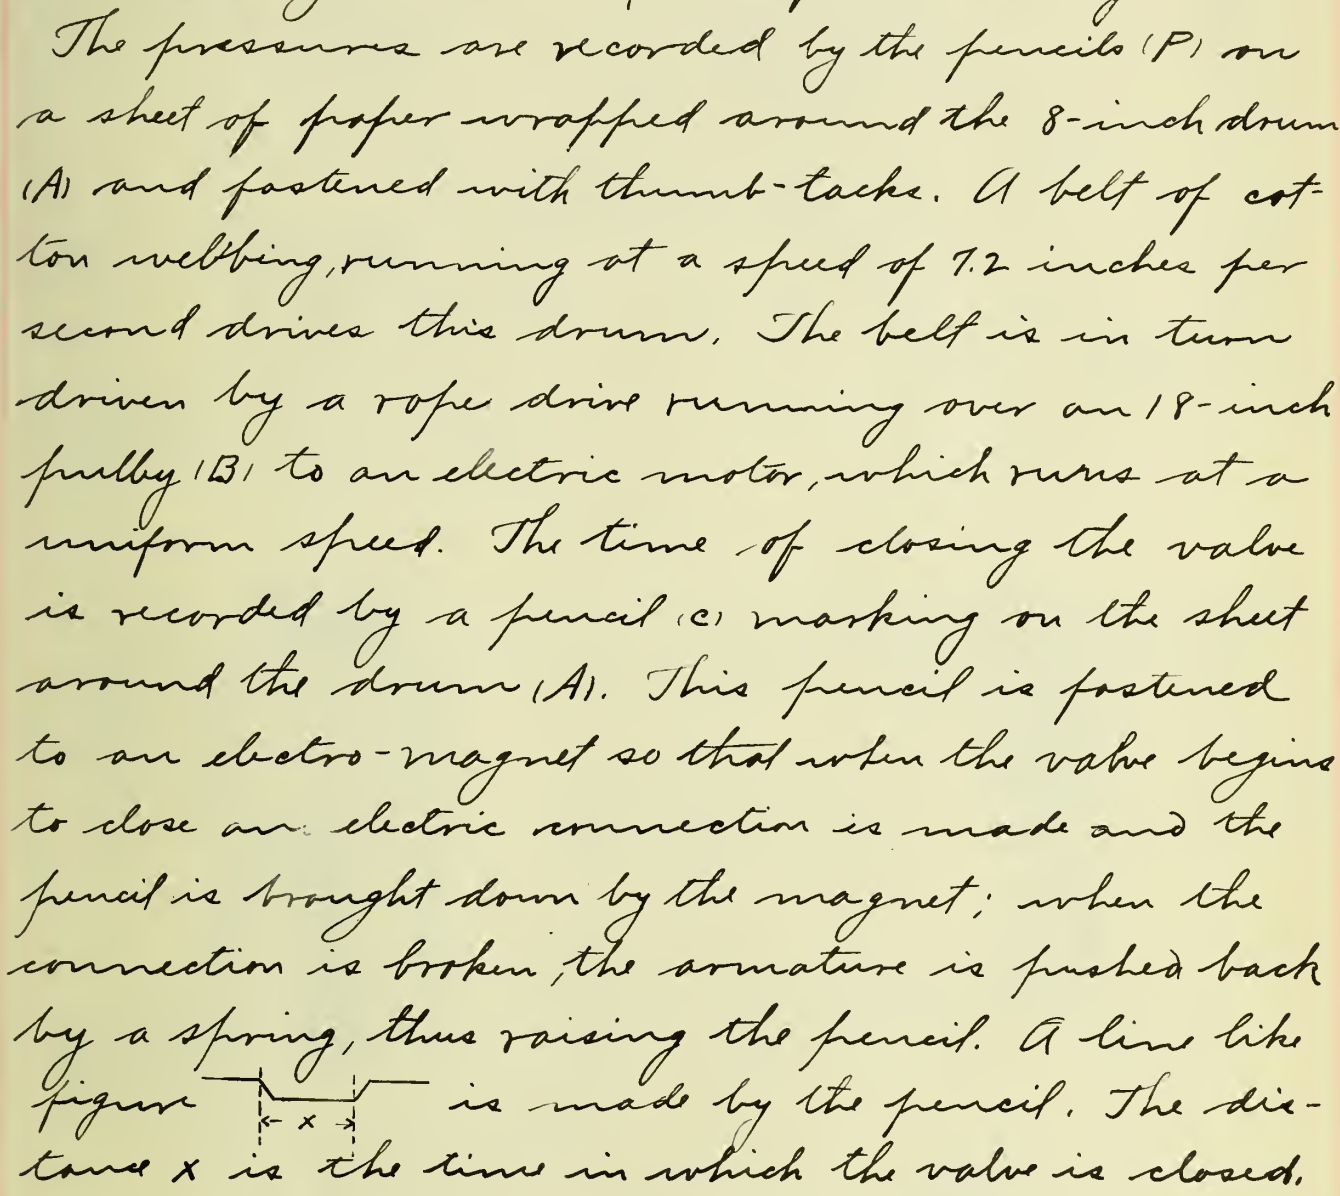 The pressures are recorded by the pencils (P) on
a sheet of paper wrapped around the 8-inch drum
(A) and fastened with thumb-tacks. A belt of cot-
ton webbing, running at a speed of 7.2 inches per
second drives this drum. The belt is in turn
driven by a rope drive running over an 18-inch
pulley (B) to an electric motor, which runs at a
uniform speed. The time of closing the valve
is recorded by a pencil (c) marking on the sheet
around the drum (A). This pencil is fastened
to an electro-magnet so that when the valve begins
to close an electric connection is made and the
pencil is brought down by the magnet; when the
connection is broken, the armature is pushed back
by a spring, thus raising the pencil. A line like
figure x is made by the pencil. The dis-
tance x is the time in which the valve is closed.